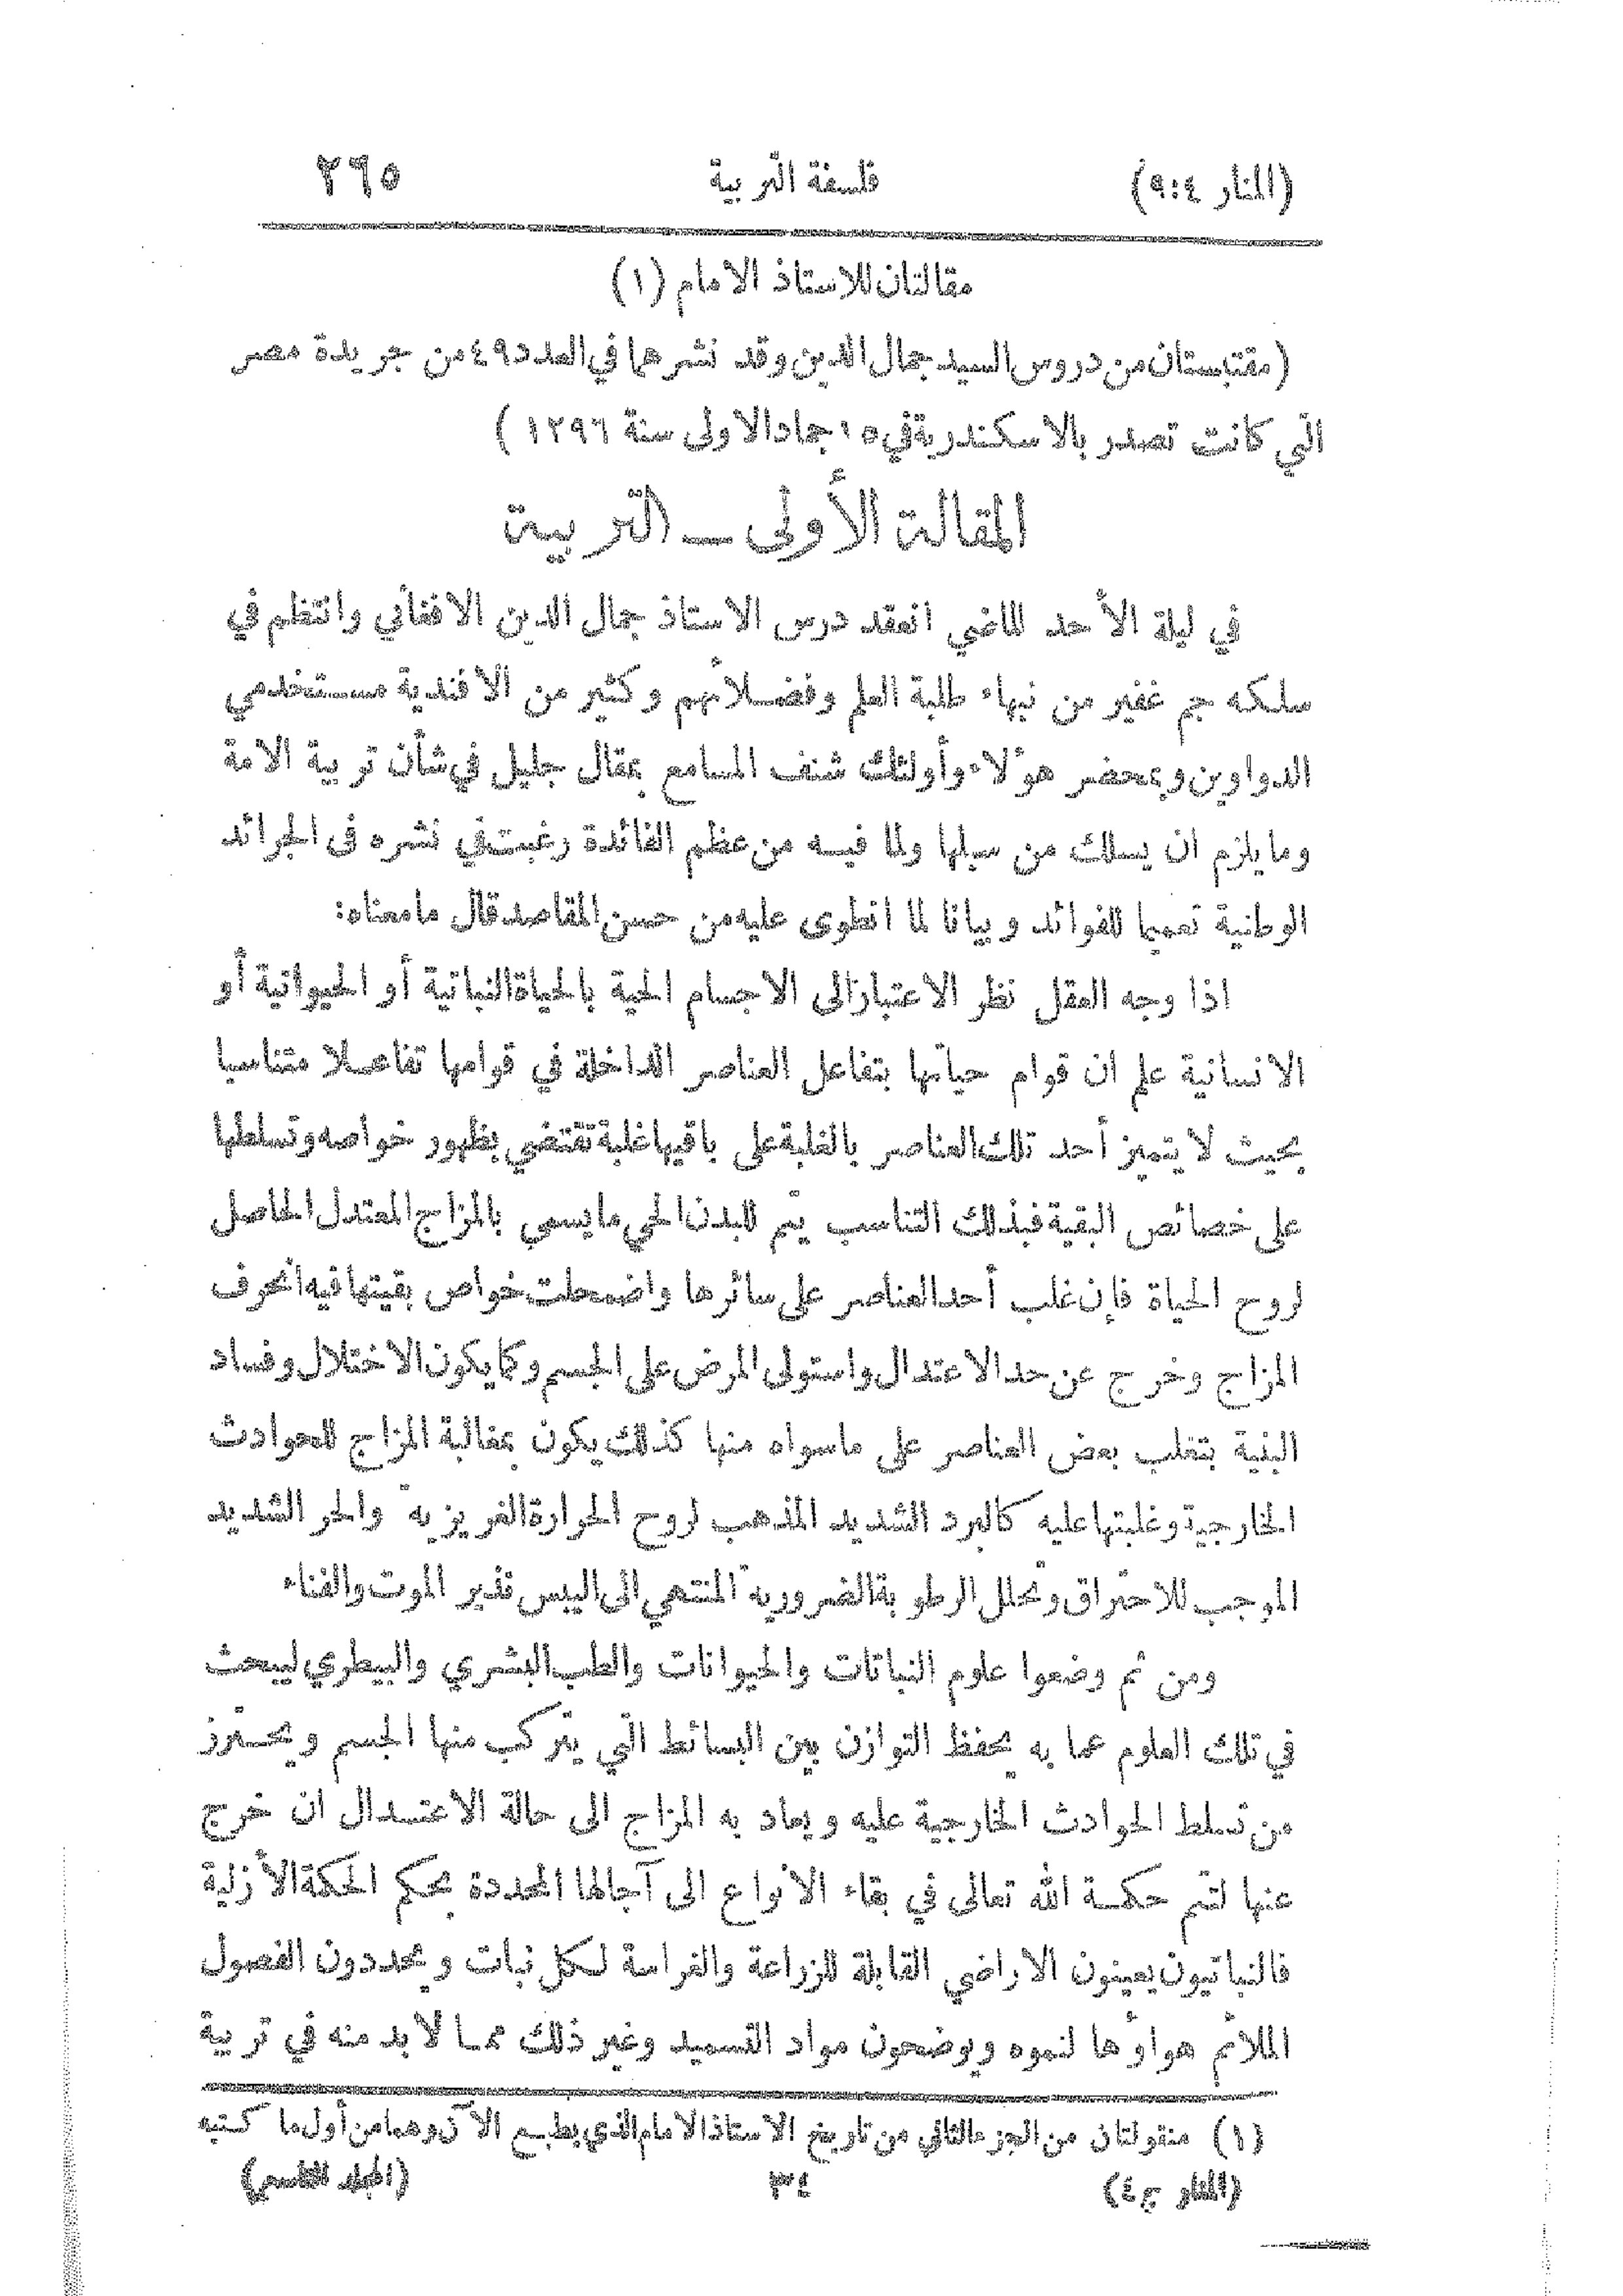 (المنار ٩:٤) فلسفة التربية ٢٦٥
مقالتان للاستاذ الامام (١)
(مقتبستان من دروس السيد جمال الدين وقد نشرهما في العدد ٤٩ من جريدة مصر
التي كانت تصدر بالاسكندرية في ١٥ جماد الاولى سنة ١٢٩٦)
المقالة الأولى ــ التربية
في ليلة الأحد الماضي انعقد درس الاستاذ جمال الدين الافغاني وانتظم في
سلكه جم غفير من نبهاء طلبة العلم وفضلائهم وكثير من الافندية مستخدمي
الدواوين وبمحضر هؤلاء وأولئك شنف المسامع بمقال جليل في شأن تربية الامة
وما يلزم ان يسلك من سبلها ولما فيه من عظم الفائدة رغبت في نشره فى الجرائد
الوطنية تعميما للفوائد وبيانا لما انطوى عليه من حسن المقاصد قال ما معناه:
اذا وجه العقل نظر الاعتبار الى الاجسام الحية بالحياة النباتية أو الحيوانية أو
الانسانية علم ان قوام حياتها بتفاعل العناصر الداخلة في قوامها تفاعلا متناسبا
بحيث لا يتميز أحد تلك العناصر بالغلبة على باقيها غلبة تقتضي بظهور خواصه وتسلطها
على خصائص البقية فبذلك التناسب يتم للبدن الحي ما يسمى بالمزاج المعتدل الحاصل
لروح الحياة فإن غلب أحد العناصر على سائرها واضمحلت خواص بقيتها فيه انحرف
المزاج وخرج عن حد الاعتدال واستولى المرض على الجسم وكما يكون الاختلال وفساد
البنية بتغلب بعض العناصر على ما سواه منها كذلك يكون بمغالبة المزاج للحوادث
الخارجية وغلبتها عليه كالبرد الشديد المذهب لروح الحرارة الغريزية والحر الشديد
الموجب للاحتراق وتحلل الرطوبة الضرورية المنتهي الى اليبس نذير الموت والفناء
ومن ثم وضعوا علوم النباتات والحيوانات والطب البشري والبيطري ليبحث
في تلك العلوم عما به يحفظ التوازن بين البسائط التي يتركب منها الجسم ويحترز
من تسلط الحوادث الخارجية عليه ويعاد به المزاج الى حالة الاعتدال ان خرج
عنها لتتم حكمة الله تعالى في بقاء الانواع الى آجالها المحددة بحكم الحكمة الأزلية
فالنباتيون يعينون الاراضي القابلة للزراعة والغراسة لكل نبات ويحددون الفصول
الملائم هواؤها لنموه ويوضحون مواد التسميد وغير ذلك مما لا بد منه في تربية
(١) منقولتان من الجزء الثاني من تاريخ الاستاذ الامام الذي يطبع الآن وهما من أول ما كتبه
(المنار ج ٤) ٣٤ (المجلد التاسع)